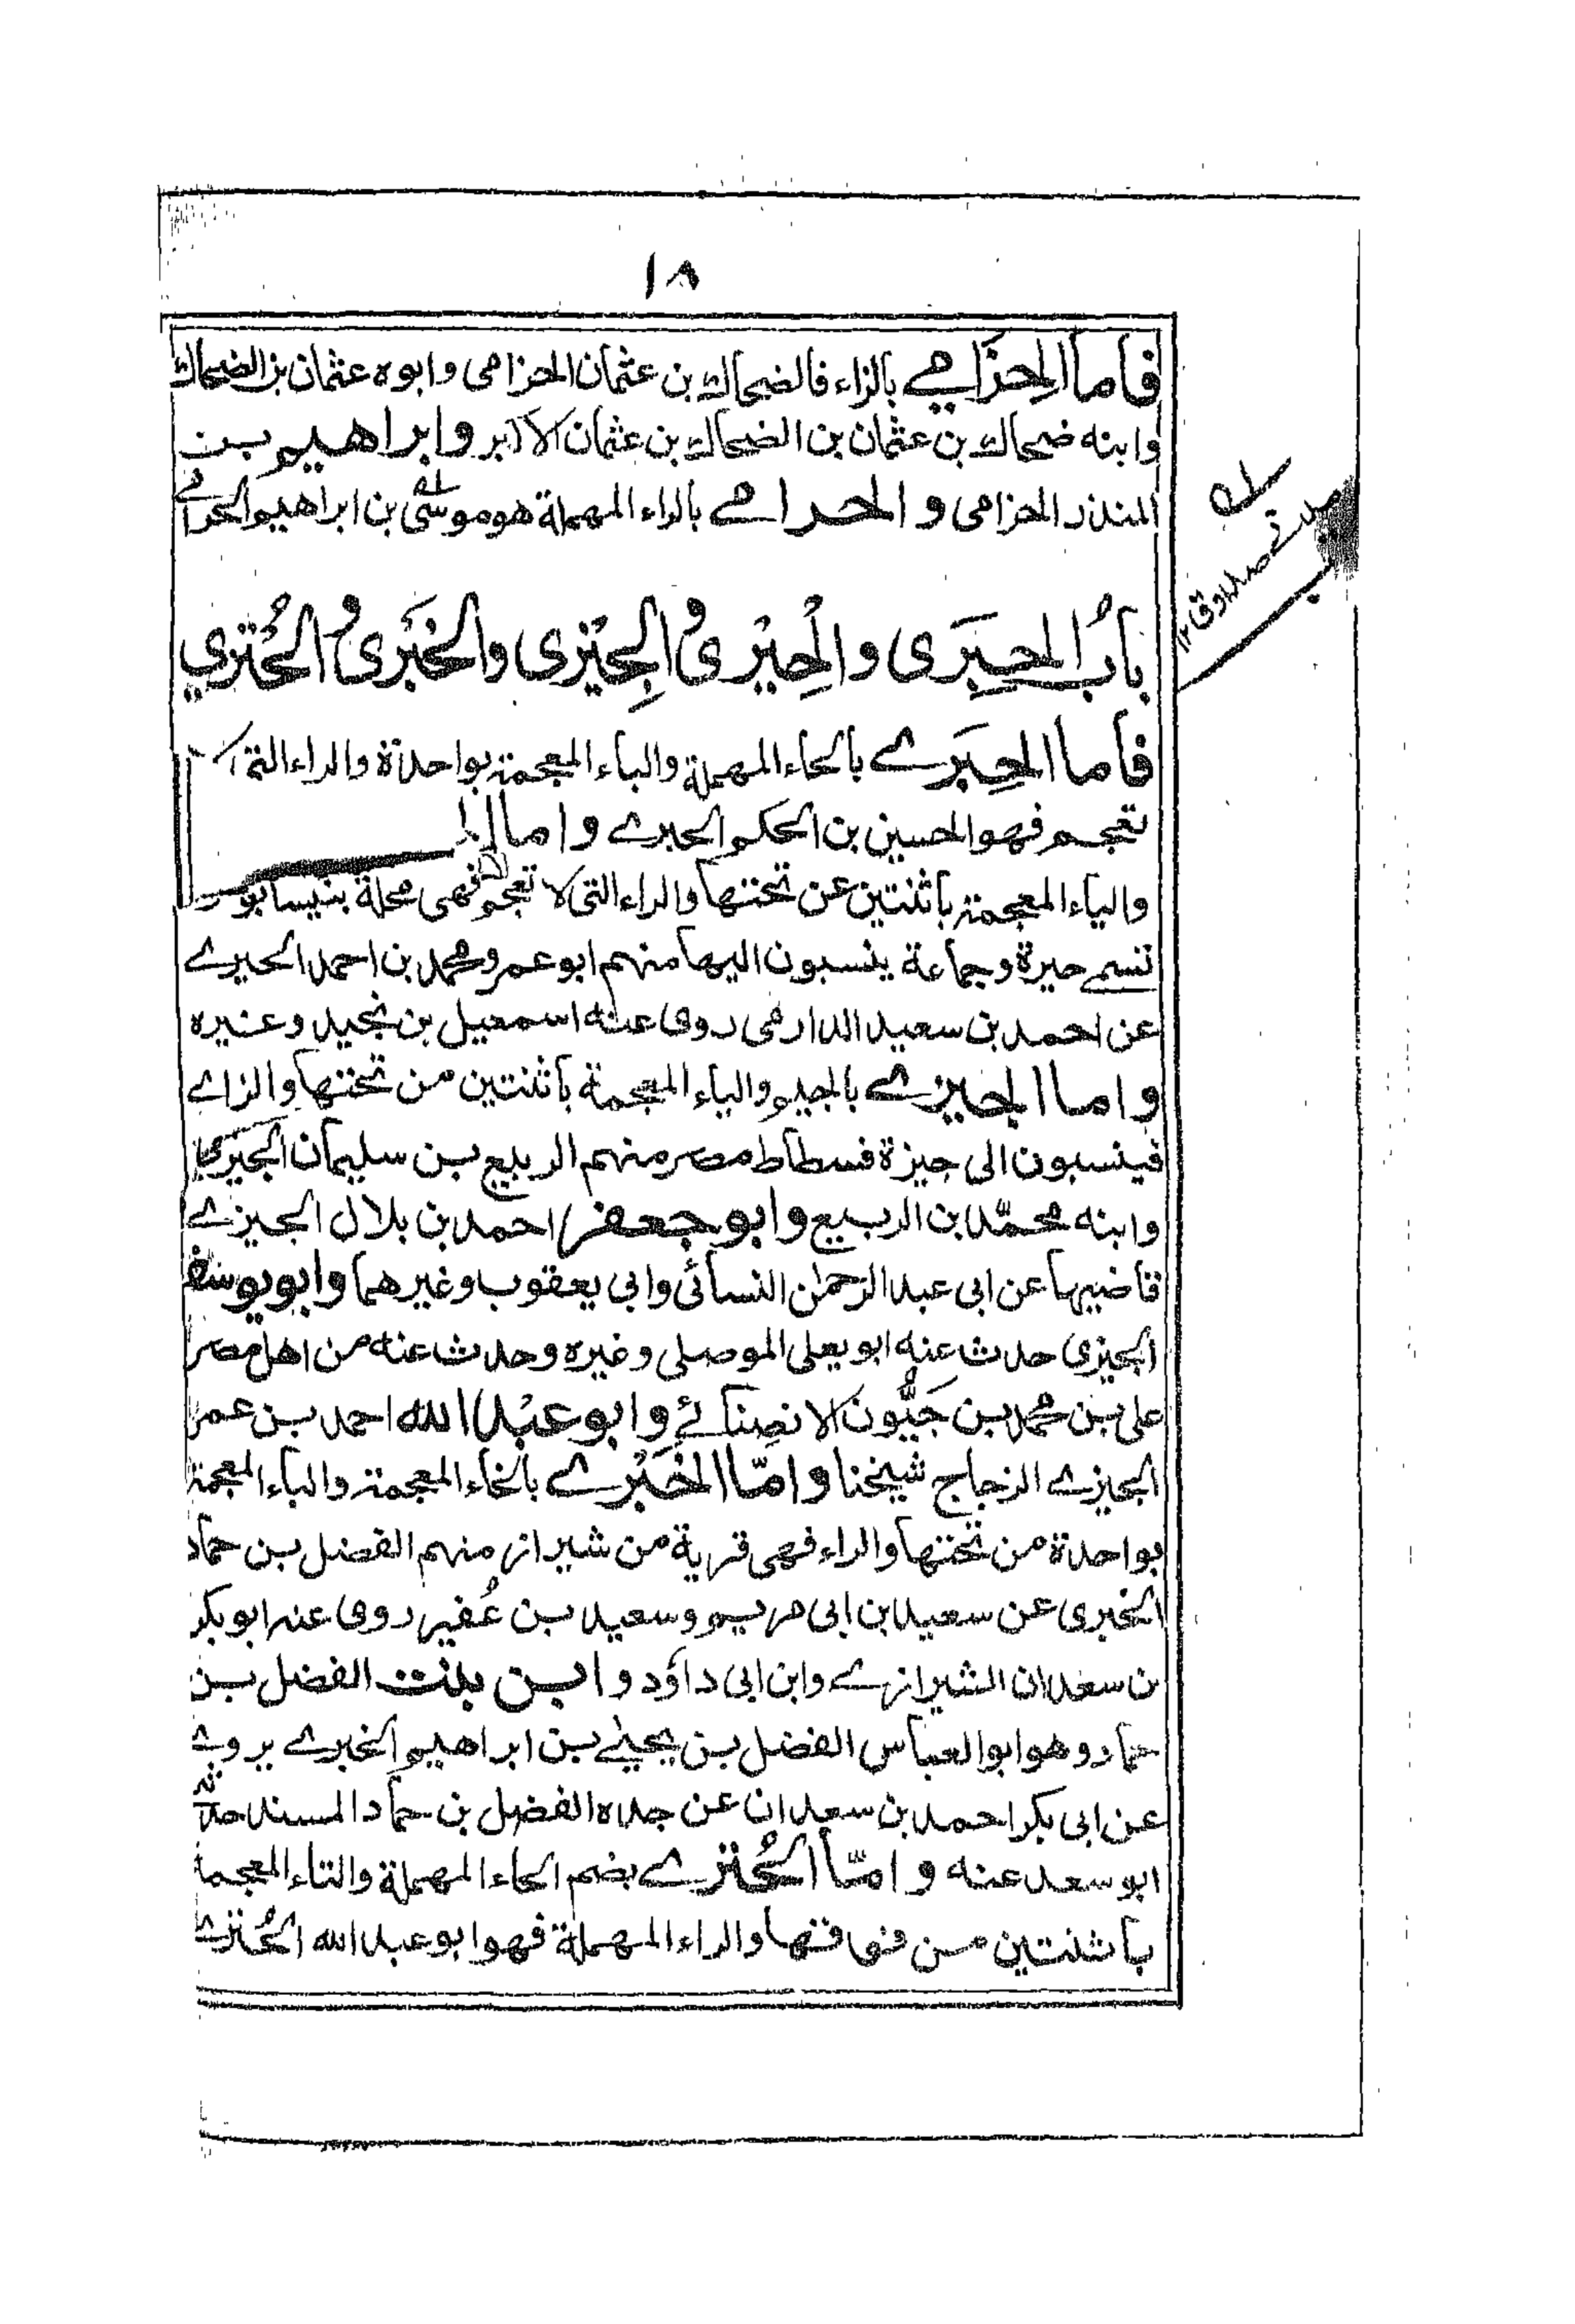 ١٨
فاما الحِزَامي بالزاء فالضحاك بن عثمان الحزامى وابوه عثمان بن الضحاك
وابنه ضحاك بن عثمان بن الضحاك بن عثمان الاكبر وابراهيم بن
المنذر الحزامى والحرامي بالراء المهملة هو موسى بن ابراهيم الحرامي
بابُ الحِبَرَى والحِيْرىُ والجِيْزى والخَبْرىُ والحُتَرِي
فاما الحِبَرَي بالحاء المهملة والباء المعجمة بواحدة والراء التى لا
تعجم فهو الحسين بن الحكم الحبري واما
والياء المعجمة باثنتين عن تحتها والراء التى لا تعجم فهى محلة بنيسابور
تسمى حيرة وجماعة ينسبون اليها منهم ابو عمرو محمد بن احمد الحيري
عن احمد بن سعيد الدارمى روى عنه اسمعيل بن نجيد وغيره
واما الجيزي بالجيم والياء المعجمة باثنتين من تحتها والزاي
فينسبون الى جيزة فسطاط مصر منهم الربيع بن سليمان الجيزى
وابنه محمّد بن الربيع وابو جعفر احمد بن بلال الجيزي
قاضيها عن ابى عبد الرحمٰن النسائى وابى يعقوب وغيرهما وابو يوسف
الجيزى حدث عنه ابو يعلى الموصلى وغيره وحدث عنه من اهل مصر
على بن محمد بن جَيُّون الانصِنائي وابو عبْد الله احمد بن عمر
الجيزي الزجاج شيخنا وامّا الخَبْري بالخاء المعجمة والباء المعجمة
بواحدة من تحتها والراء فهى قرية من شيراز منهم الفضل بن حماد
الخبرى عن سعيد بن ابى مريم وسعيد بن عُفير روى عنه ابو بكر
بن سعدان الشيرازي وابن ابى داؤد وابن بنت الفضل بن
حماد وهو ابو العباس الفضل بن يحيٰى بن ابراهيم الخبري يروي
عن ابى بكر احمد بن سعدان عن جده الفضل بن حماد المسند حدثنيه
ابو سعد عنه وامّا الحُتَري بضم الحاء المهملة والتاء المعجمة
باثنتين من فوقتها والراء المهملة فهو ابو عبد الله الحُتَري
مدنى صدوق ١٢